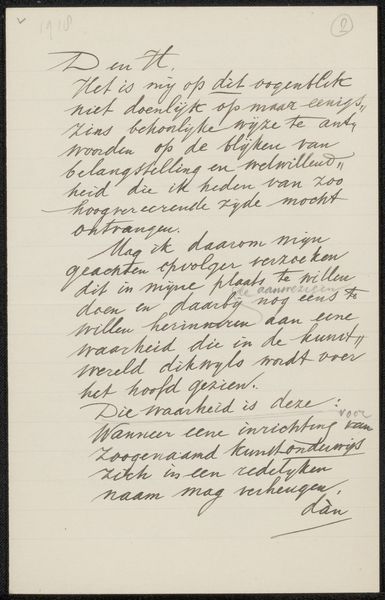 1918
2
D en H.
Het is mij op dit oogenblik
niet doenlijk op maar eenigs„
zins behoorlijke wijze te ant„
woorden op de blijken van
belangstelling en welwillend„
heid die ik heden van zoo
hoogvereerende zijde mocht
ontvangen.
Mag ik daarom mijn
geachten opvolger verzoeken
dit in mijne plaats te willen
de aanwezigen
doen en daarbij nog eens te
willen herinneren aan eene
waarheid die in de kunst„
wereld dikwijls wordt over
het hoofd gezien.
Die waarheid is deze:
voor
Wanneer eene inrichting van
zoogenaamd kunstonderwijs
zich in een redelijken
naam mag verheugen,
dàn